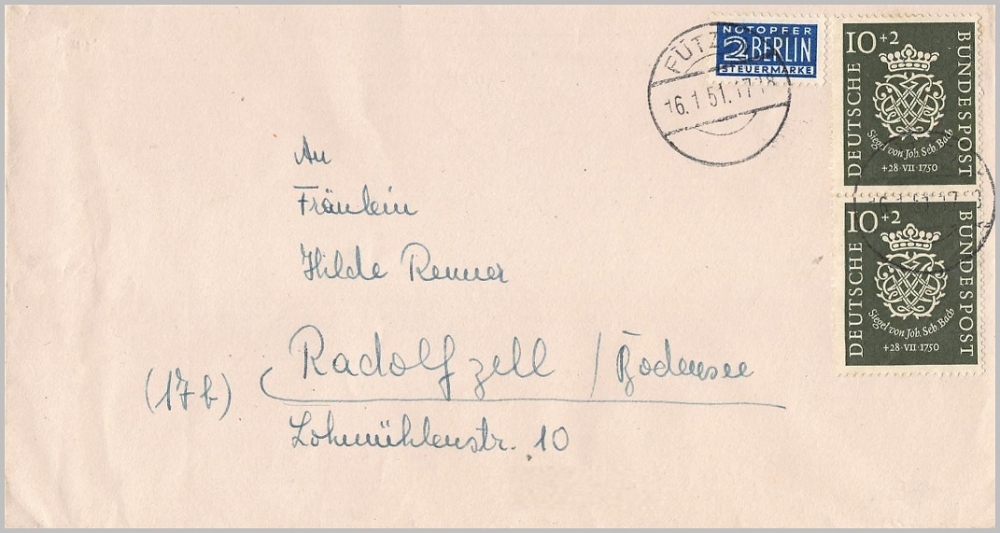 NOTOPFER
2 BERLIN
STEUERMARKE
16.1.51.17-18
10+2
DEUTSCHE
BUNDESPOST
Siegel von Joh. Seb. Bach
+28·VII·1750
10+2
DEUTSCHE
BUNDESPOST
Siegel von Joh. Seb. Bach
+28·VII·1750
An
Fräulein
Hilde Renner
(17b) Radolfzell / Bodensee
Lohmühlenstr. 10